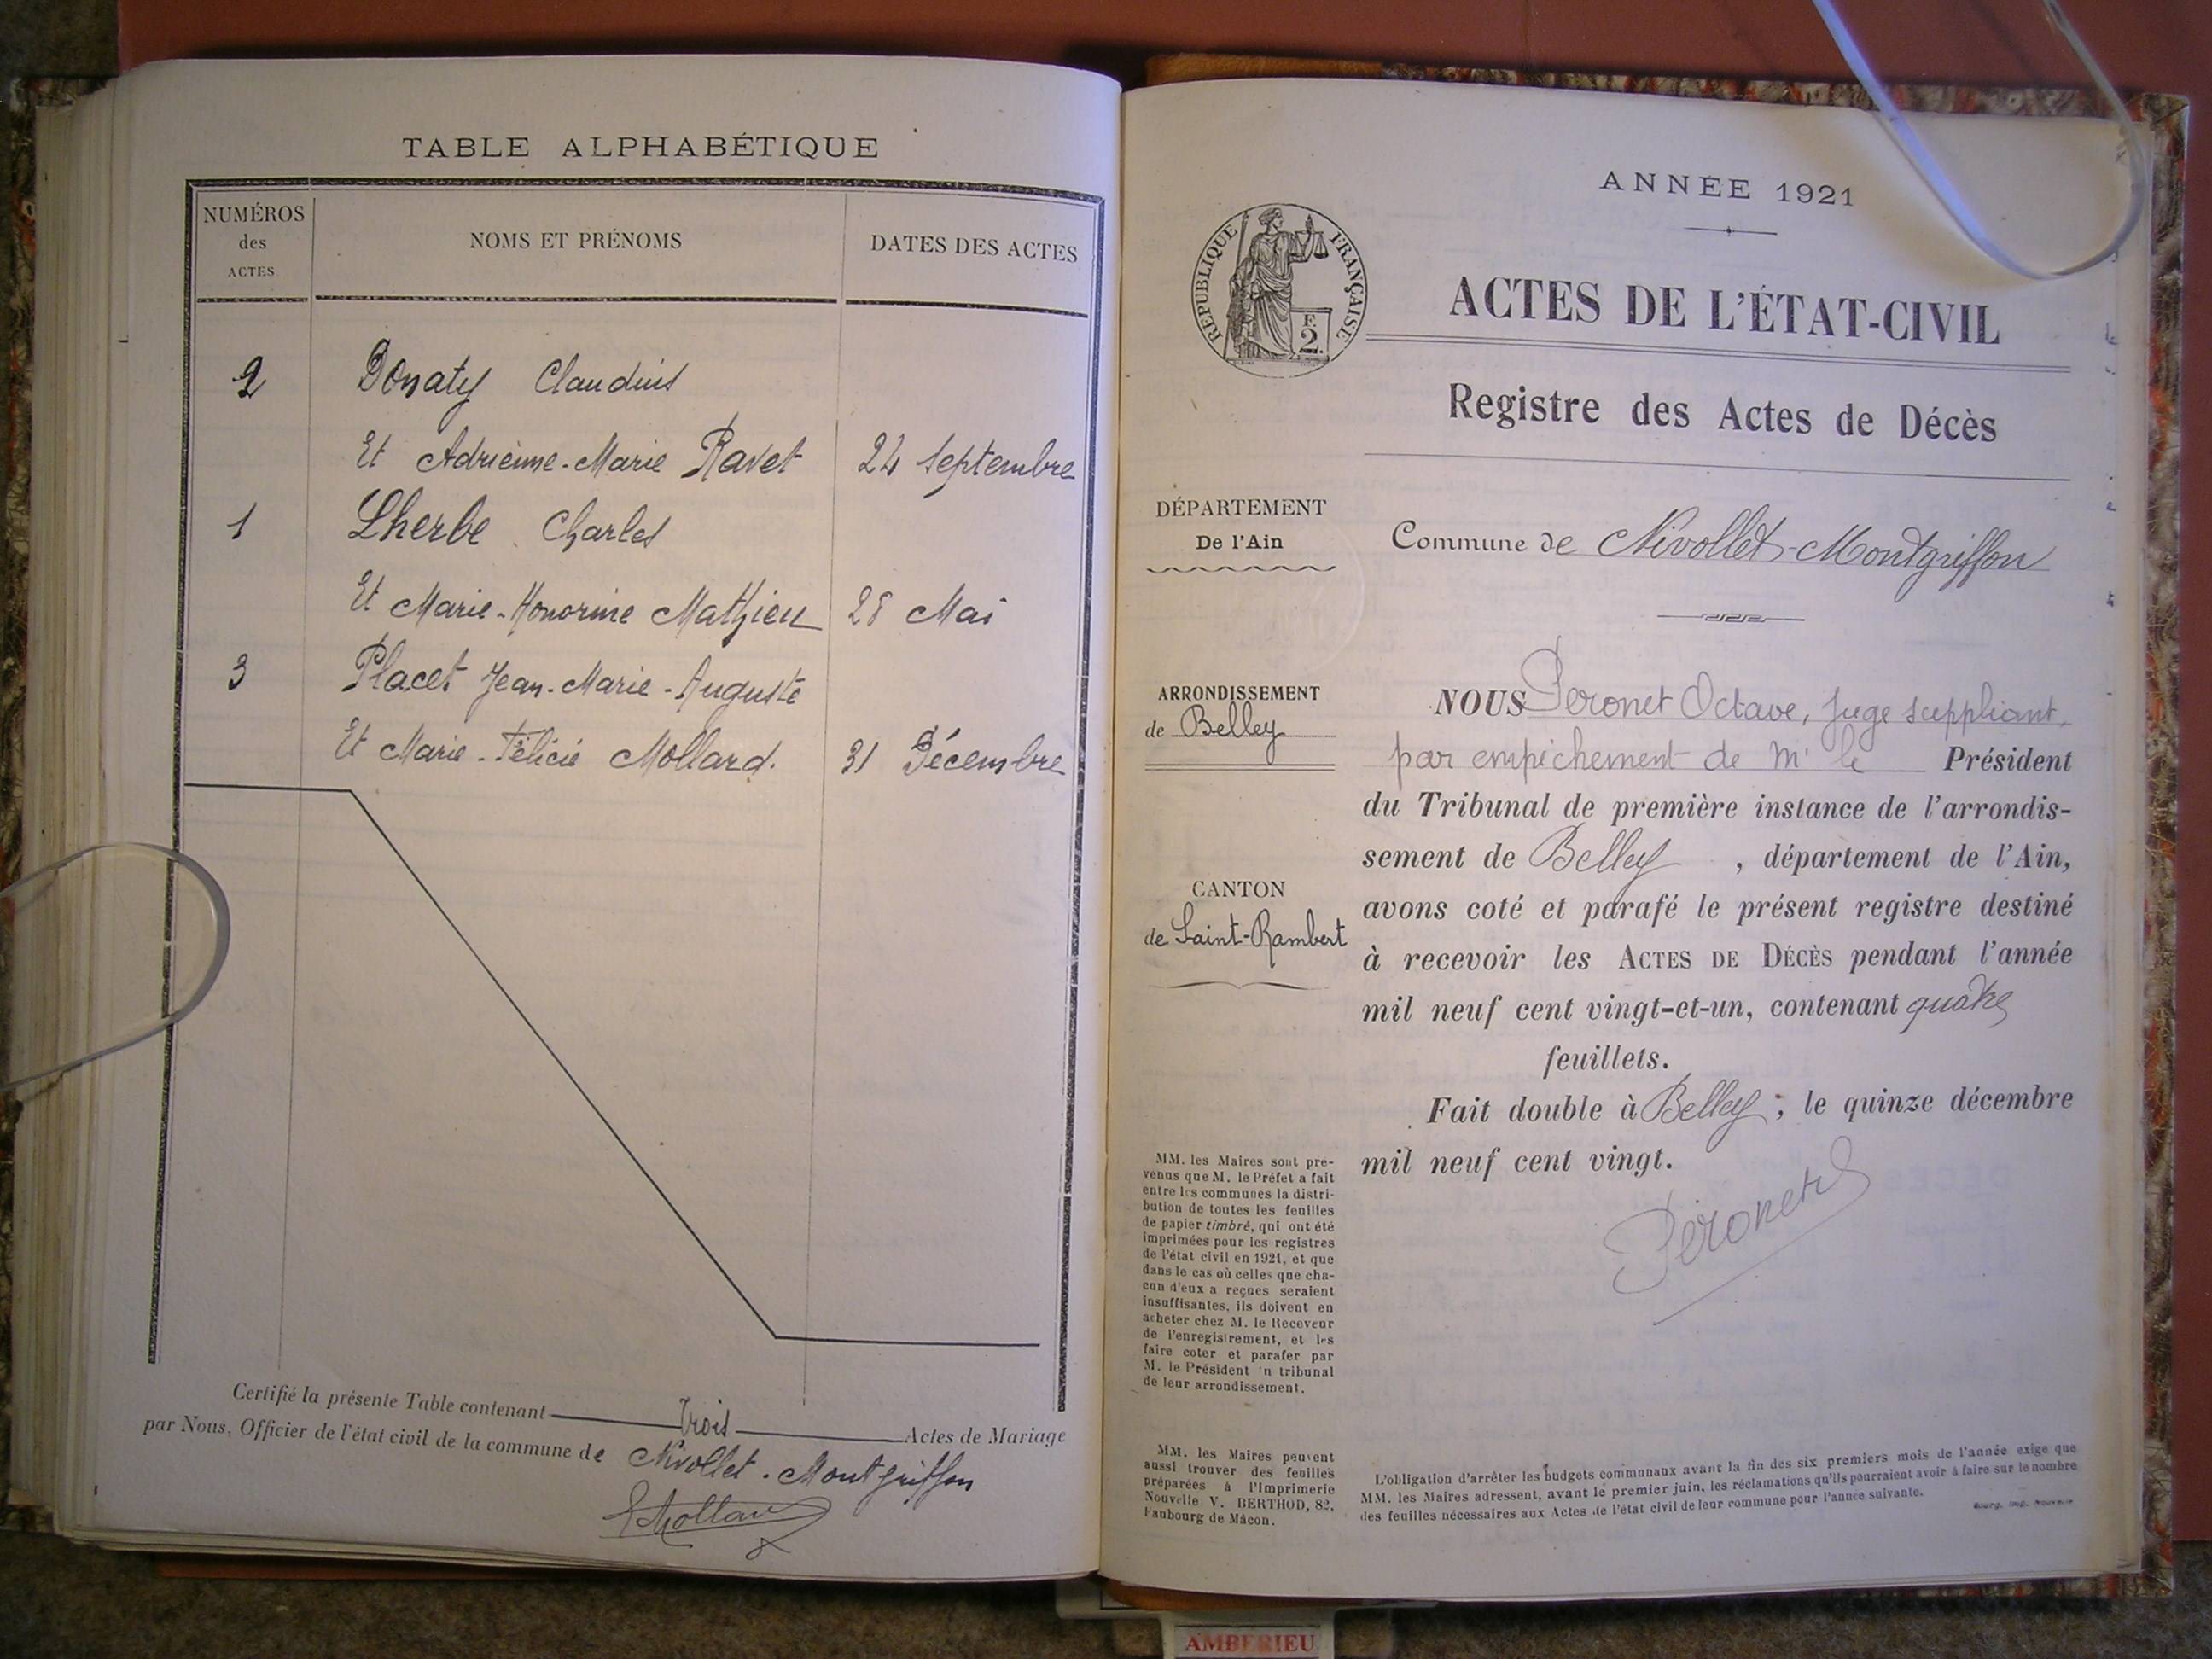 TABLE ALPHABÉTIQUE
NUMÉROS
des
ACTES
NOMS ET PRÉNOMS
DATES DES ACTES
2 Donaty Claudius
Et Adrienne-Marie Ravet 24 Septembre
1 Lherbe Charles
Et Marie-Honorine Mathieu 28 Mai
3 Placet Jean-Marie-Auguste
Et Marie-Félicie Mollard. 31 Décembre
Certifié la présente Table contenant Trois Actes de Mariage
par Nous, Officier de l'état civil de la commune de Nivollet-Montgriffon
ANNÉE 1921
RÉPUBLIQUE FRANÇAISE
F.
2.
ACTES DE L'ÉTAT-CIVIL
Registre des Actes de Décès
DÉPARTEMENT
De l'Ain
Commune de Nivollet-Montgriffon
ARRONDISSEMENT
de Belley
CANTON
de Saint-Rambert
NOUS Peronet Octave, juge suppliant,
par empêchement de Mr le Président
du Tribunal de première instance de l'arrondis-
sement de Belley, département de l'Ain,
avons coté et parafé le présent registre destiné
à recevoir les ACTES DE DÉCÈS pendant l'année
mil neuf cent vingt-et-un, contenant quatre
feuillets.
Fait double à Belley; le quinze décembre
mil neuf cent vingt.
Péronet
MM. les Maires sont pré-
venus que M. le Préfet a fait
entre les communes la distri-
bution de toutes les feuilles
de papier timbré, qui ont été
imprimées pour les registres
de l'état civil en 1921, et que
dans le cas où celles que cha-
cun d'eux a reçues seraient
insuffisantes, ils doivent en
acheter chez M. le Receveur
de l'enregistrement, et les
faire coter et parafer par
M. le Président n tribunal
de leur arrondissement.
MM. les Maires peuvent
aussi trouver des feuilles
préparées à l'Imprimerie
Nouvelle V. BERTHOD, 82,
Faubourg de Mâcon.
L'obligation d'arrêter les budgets communaux avant la fin des six premiers mois de l'année exige que
MM. les Maires adressent, avant le premier juin, les réclamations qu'ils pourraient avoir à faire sur le nombre
des feuilles nécessaires aux Actes de l'état civil de leur commune pour l'année suivante.
Bourg, Imp. Nouvelle
AMBERIEU